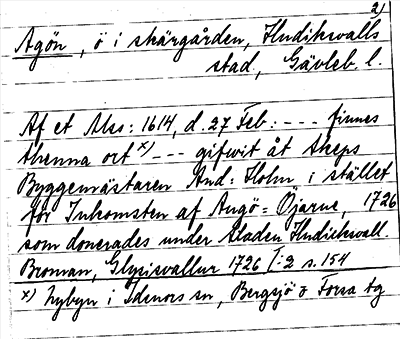 2)
Agön, ö i skärgården, Hudiksvalls
stad, Gävleb. l.
Af et Mss: 1614, d. 27 Feb: --- finnes
thenna ort x) --- gifwit åt Skeps
Byggemästaren And: Holm i stället
för Inkomsten af Angö= Öjarne, 1726
som donerades under Staden Hudichsvall.
Broman, Glysisvallur 1726 I:2 s. 154
x) Nybyn i Idenors sn, Bergsjö o Forsa tg